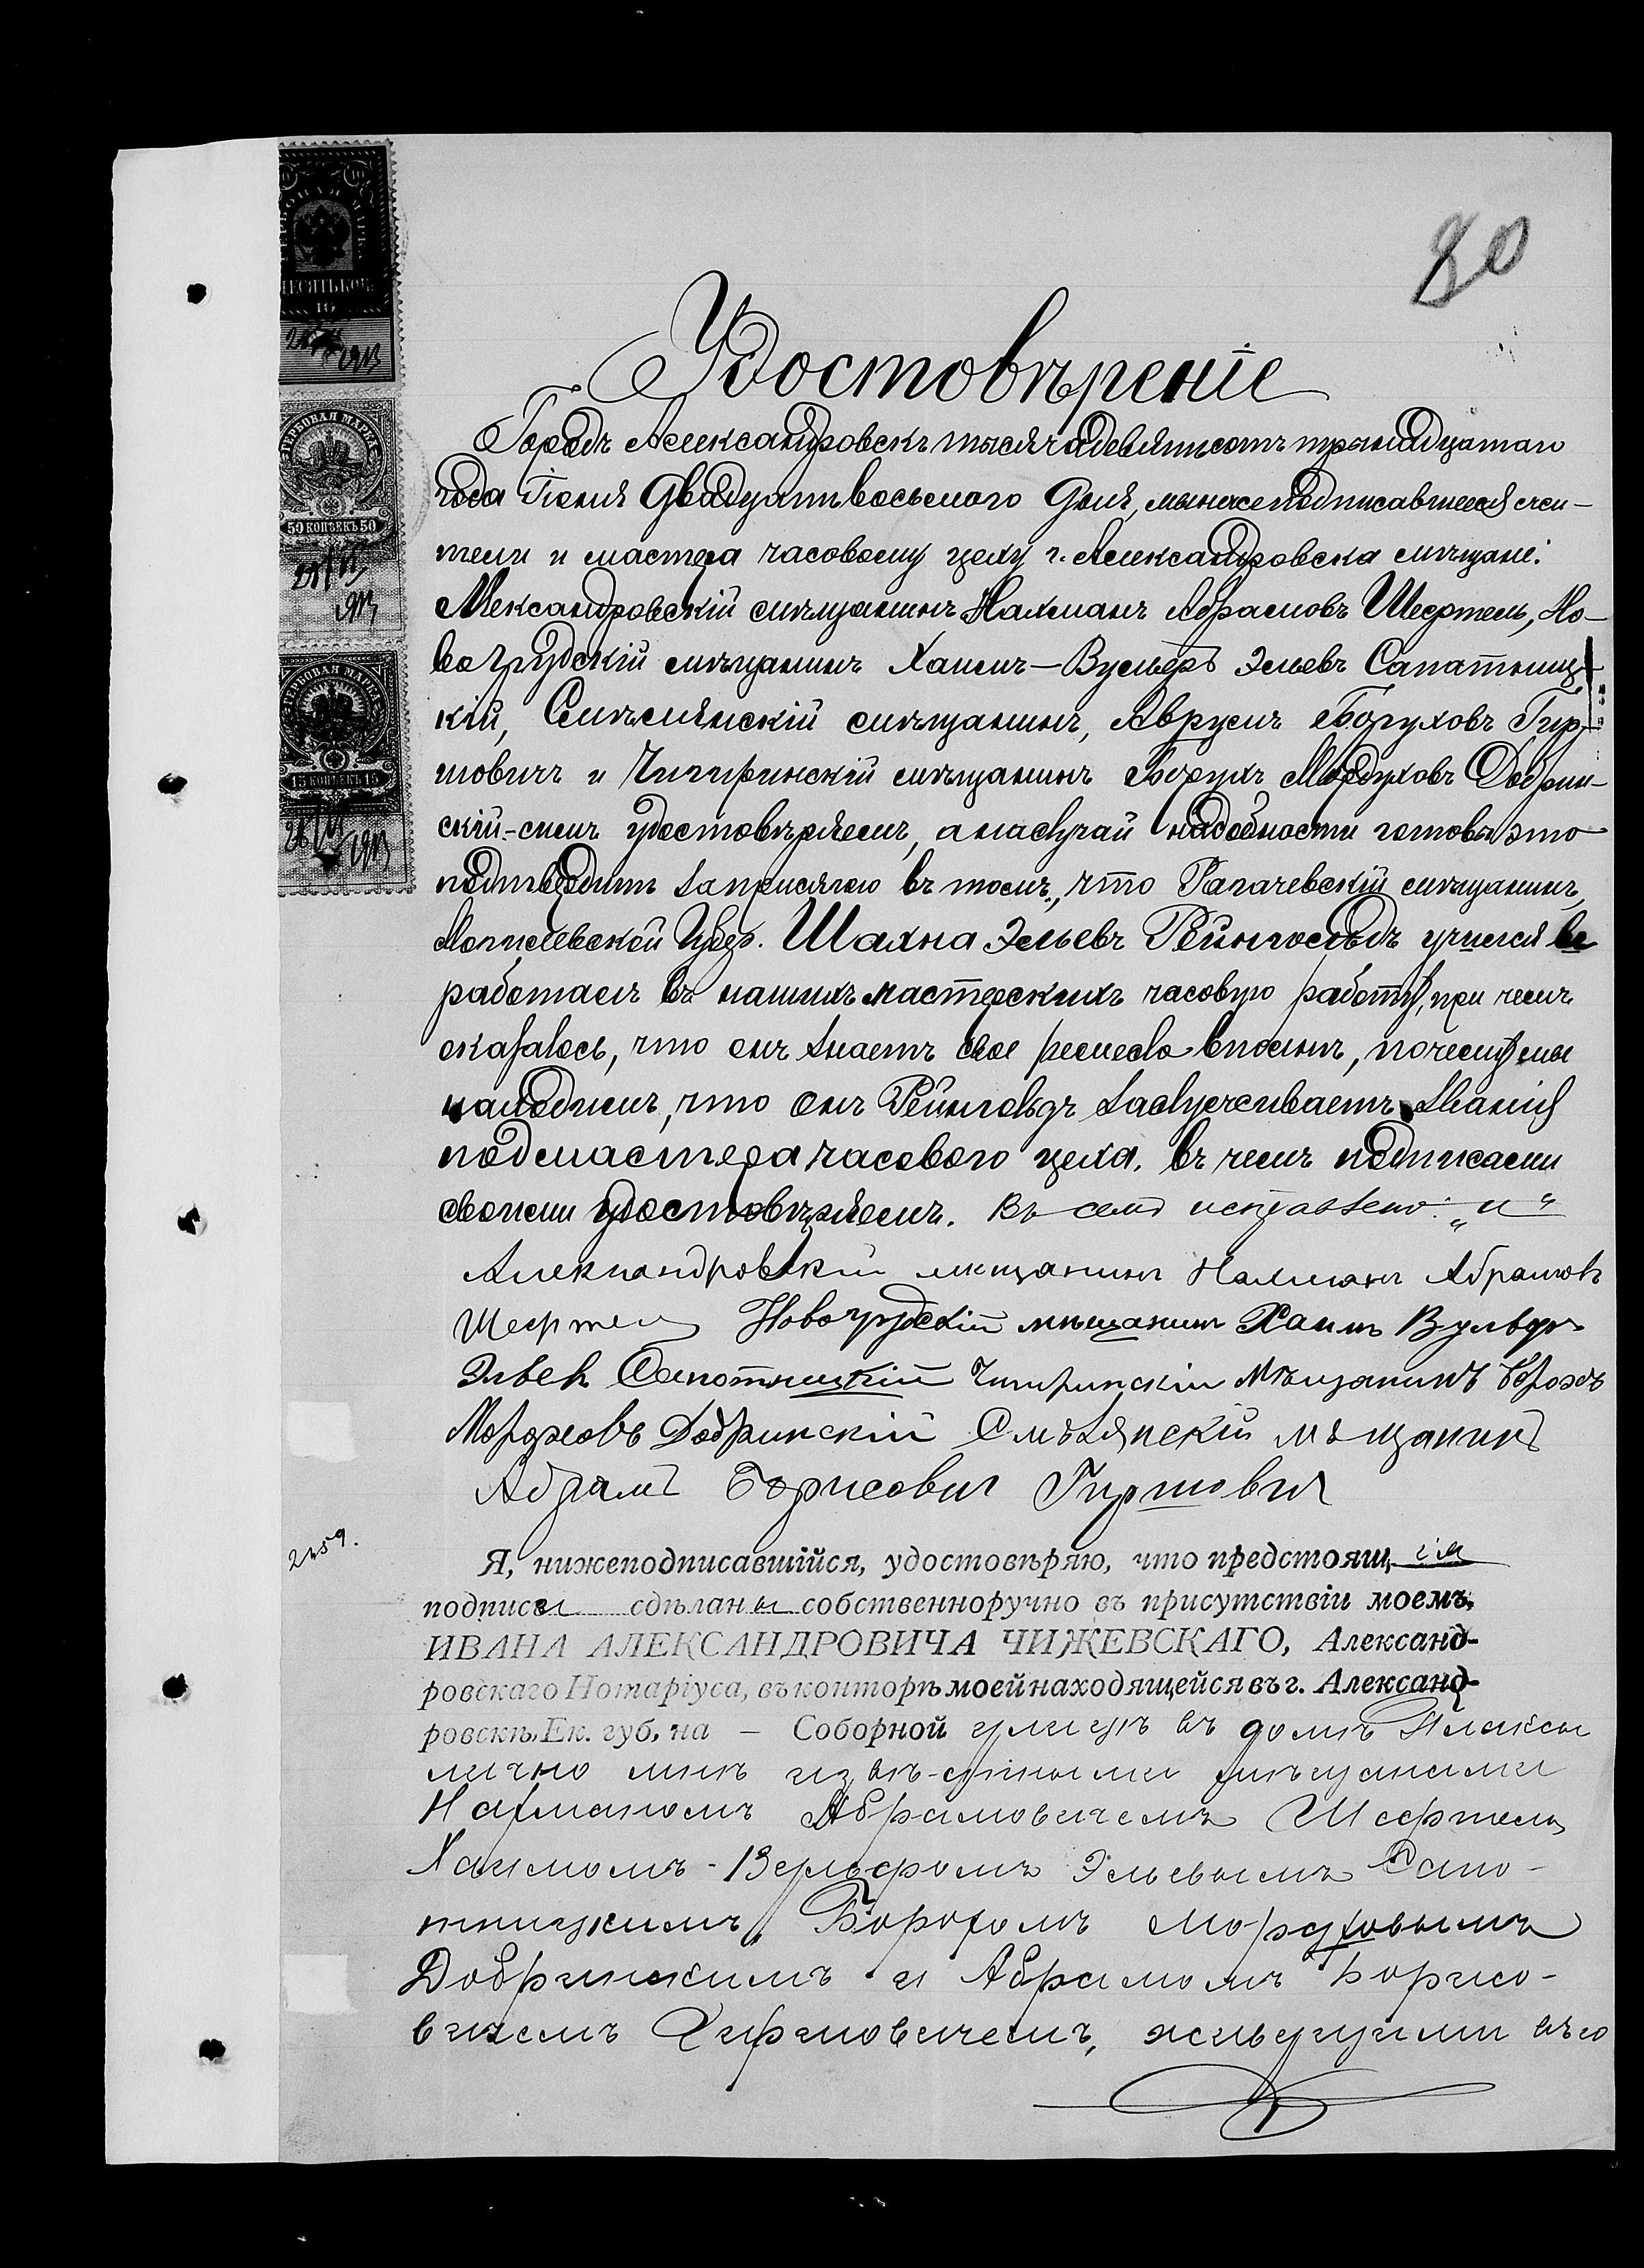 80
ГЕРБОВАЯ МАРКА
ДЕСЯТЬ КОП.
10
ГЕРБОВАЯ МАРКА
50 КОПѢЕКЪ 50
ГЕРБОВАЯ МАРКА
15 КОПѢЕКЪ 15
Удостовѣреніе
Городъ Александровскъ тысяча девятьсотъ тринадцатаго
года двадцать восьмого дня, мы нижеподписавшіеся жи-
тели и мастера часовому цеху г. Александровска мѣщане:
Александровскій мѣщанинъ Нахманъ Абрамовъ Шефтель, Но-
вогрудскій мѣщанинъ Хаимъ-Вульфъ Эльевъ Сапатниц-
кій, Смѣлянскій мѣщанинъ, Аврумъ Боруховъ Гир-
шовичъ и Чигиринскій мѣщанинъ Борухъ Мордуховъ Добрин-
скій-симъ удостовѣряемъ, а на случай надобности готовы это
подтвердить за присягою въ томъ, что Рагачевскій мѣщанинъ,
Могилевской Губер. Шахна Эльевъ Рейнгольдъ учился и
работалъ въ нашихъ мастерскихъ часовую работу, при чемъ
оказалось, что онъ знаетъ свое ремесло вполнѣ, почему мы
находимъ, что онъ Рейнгольдъ заслуживаетъ званія
подмастера часового цеха, въ чемъ подписами
своими удостовѣряемъ. Въ семъ исправлено: „и“
Александровскій мещанинъ Нахманъ Абрамовъ
Шефтель Новогрудскій мѣщанинъ Хаимъ Вульфъ
Эльевъ Сапотницкій Чигиринскій мѣщанинъ
Добринскій Смѣлянскій мѣщанинъ
Абрамъ Борисовичъ Гиршовичъ
2459.
Я, нижеподписавшійся, удостовѣряю, что предстоящія
подписи сдѣланы собственноручно въ присутствіи моемъ,
ИВАНА АЛЕКСАНДРОВИЧА ЧИЖЕВСКАГО, Александ-
ровскаго Нотаріуса, въ конторѣ моей находящейся въ г. Александ-
ровскѣ, Ек. губ, на — Соборной улицѣ въ домѣ Плаксы
лично мнѣ извѣстными мѣщанами
Нахманомъ Абрамовичемъ Шефтель,
Хаимомъ-Вульфомъ Эльевымъ Сапо-
тницкимъ, Борохомъ Мордуховымъ
Добринскимъ и Абрамомъ Борисо-
вичемъ Гиршовичемъ, живущими въ г